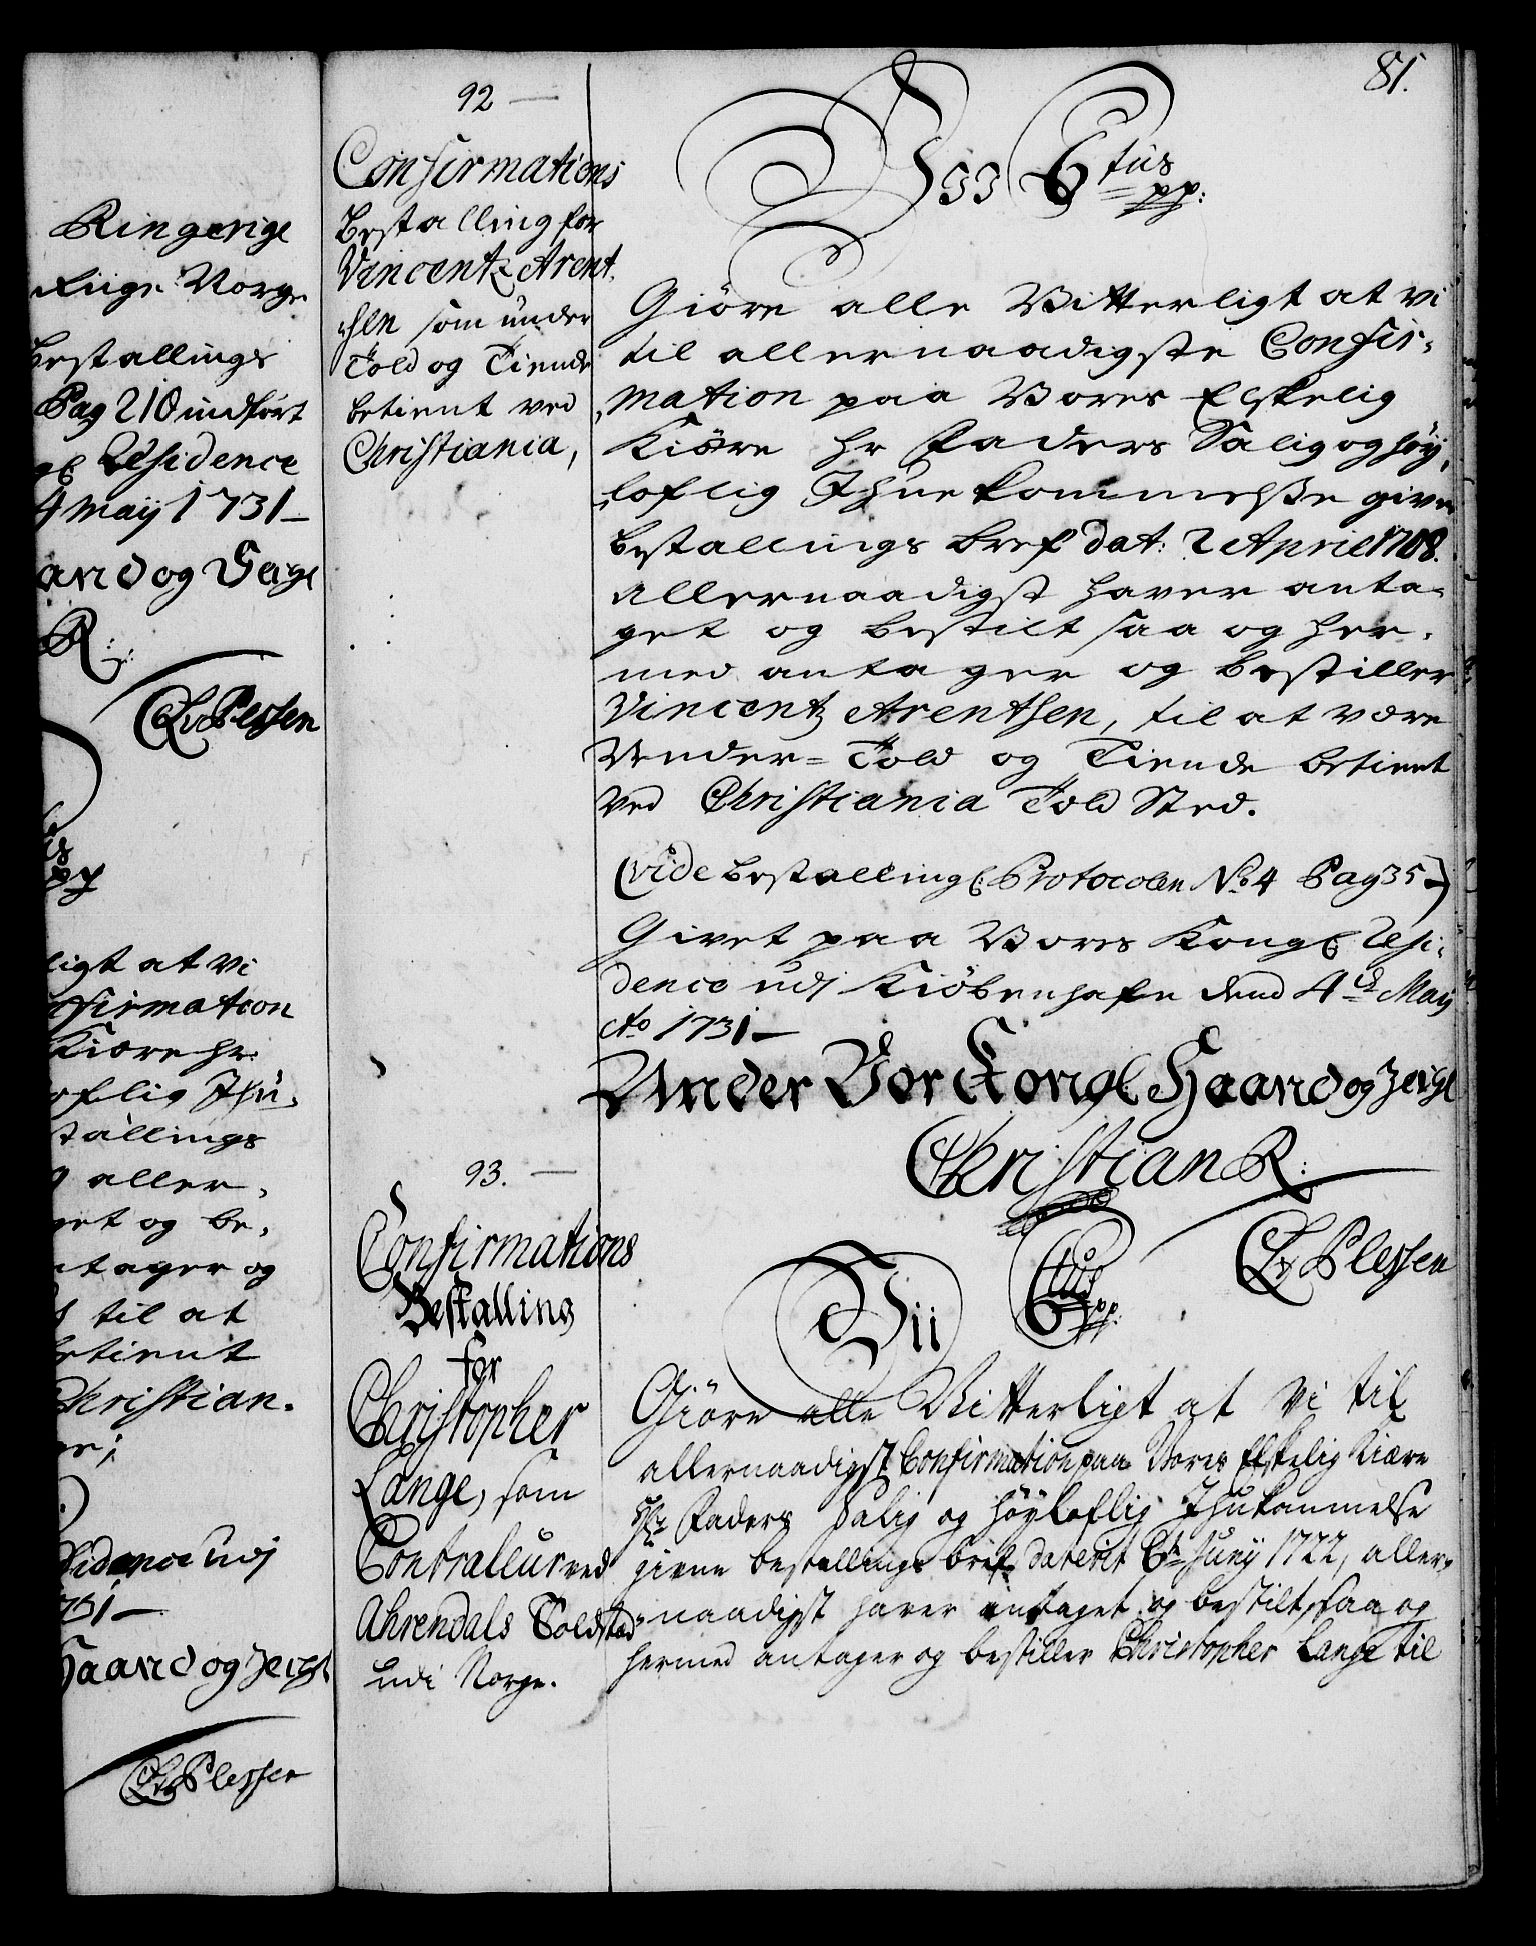 Ringerige
Norge
Bestallings
Pag 210 indført
gl Residence
4 Maij 1731 —
aand og Seigl
R:
CAvPlessen
ligt at vi
nfirmation
Kiære Hr:
oflig Ihu-
stallings
aller-
get og be-
ntager og
til at
betient
Christian-
sidence udj
1731 —
Haand og Zeigl
CAvPlessen
81.
92 —
Confirmations
Bestalling for
Vincentz Arent-
sen som under
Told og Tiende
betient ved
Christiania,
Vii C6tus
pp:
Giöre alle Vitterligt at vi
til allernaadigste Confir-
mation paa Vores Elskelig
Kiöre Hr Faders Salig og höy-
loflig Ihuekommelsse given
bestallings bref dat: 2 April 1708.
allernaadigst haver anta-
get og bestilt saa og her-
med antager og bestiller
Vincentz Arentsen, til at være
Under-Told og Tiende betient
ved Christiania Told Sted.
(vide bestallings Protocolen No 4 Pag 35 —)
Givet paa Vores Kongl Resi-
dence udj Kiöbenhafn dend 4de Maij
Ao 1731 —
Under Vor Kongl Haand og Zeigl
Christian R:
CAvPlessen
93. —
Confirmations
Bestalling
for
Christopher
Lange, som
Contralleur ved
Ahrendals Toldsted
udi Norge.
Vii C6tus
pp:
Giöre alle Vitterligt at vi til
allernaadigst Confirmation paa Vores Elskelig Kiære
Hr Faders Salig og höyloflig Ihukommelse
givne bestallings bref daterit 6te Juny 1722, aller-
naadigst haver antaget og bestilt, saa og
hermed antager og bestiller Christopher Lange til